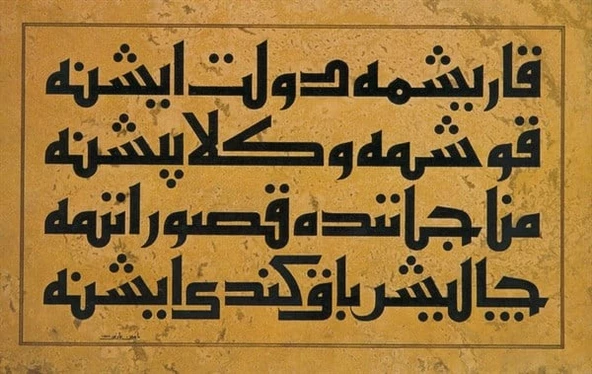 قاریشمه دولت ایشنه
قوشمه وكلا پشنه
مناجاتنده قصور اتمه
چالیشر باق كندی ایشنه